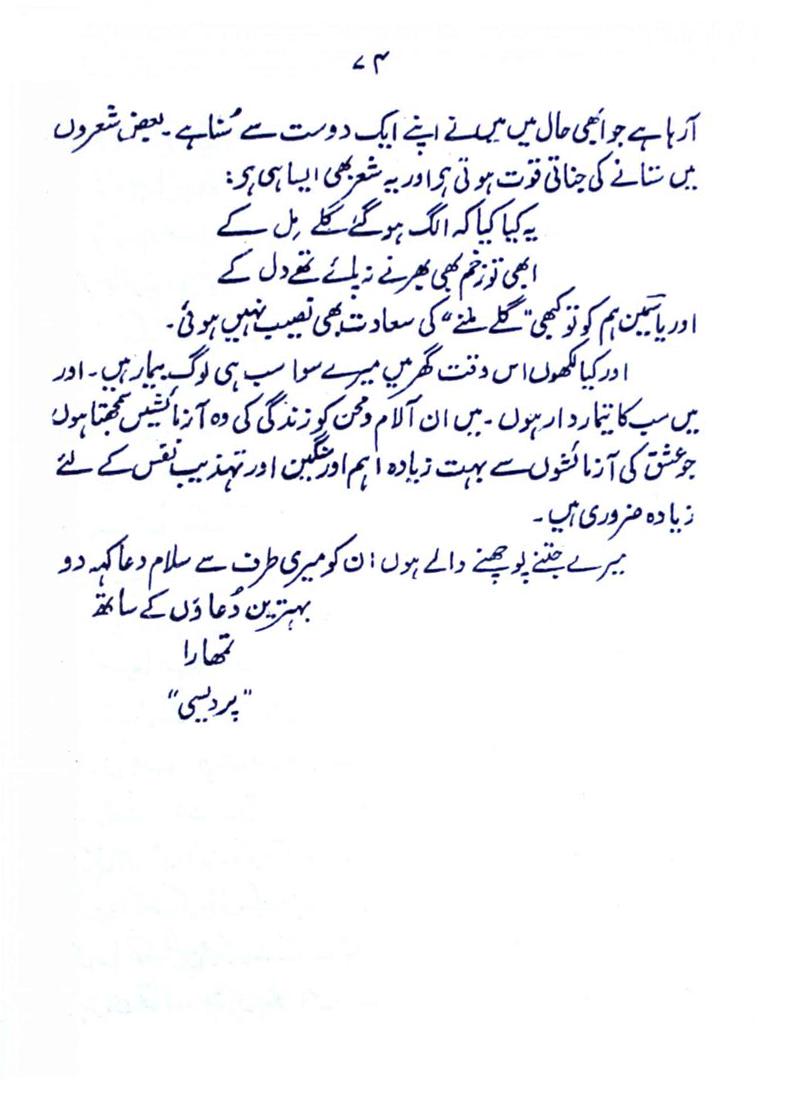 ۷۴
آرہا ہے جو ابھی حال میں میں نے اپنے ایک دوست سے سُنا ہے۔ بعض شعروں
میں ستانے کی جناتی قوت ہوتی ہی اور یہ شعر بھی ایسا ہی ہی:
یہ کیا کیا کہ الگ ہو گئے گلے مِل کے
ابھی تو زخم بھی بھرنے نہ پائے تھے دل کے
اور یاسمین ہم کو تو کبھی "گلے ملنے" کی سعادت بھی نصیب نہیں ہوئی۔
اور کیا لکھوں اس وقت گھر میں میرے سوا سب ہی لوگ بیمار ہیں۔ اور
میں سب کا تیمار دار ہوں۔ میں ان آلام و محن کو زندگی کی وہ آزمائشیں سمجھتا ہوں
جو عشق کی آزمائشوں سے بہت زیادہ اہم اور سنگین اور تہذیب نفس کے لئے
زیادہ ضروری ہیں۔
میرے جتنے پوچھنے والے ہوں ان کو میری طرف سے سلام دعا کہہ دو
بہترین دُعاؤں کے ساتھ
تمھارا
"پردیسی"